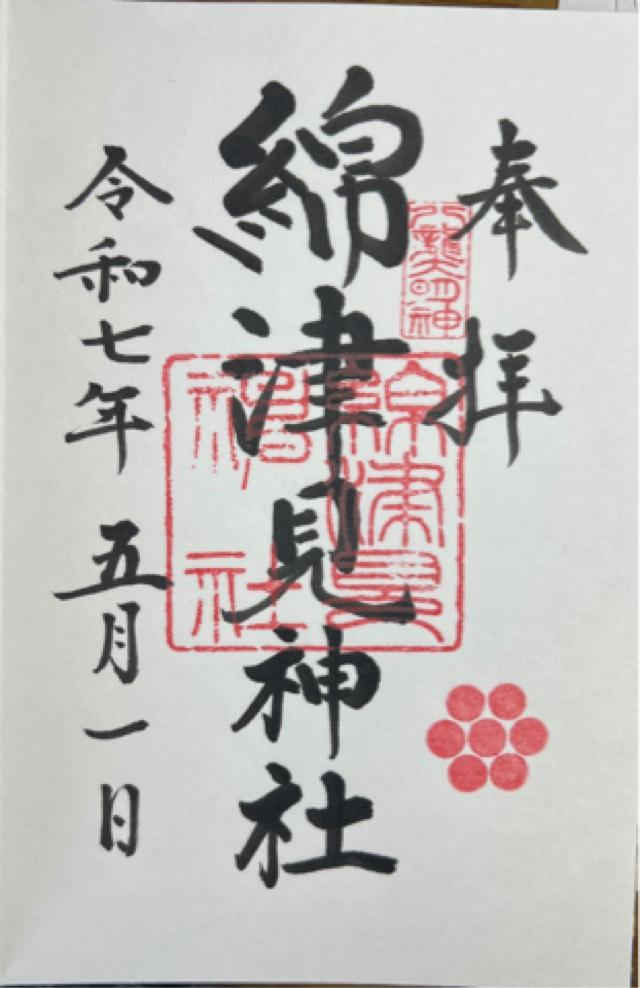 奉拝
八龍大明神
綿津見神社
綿津見神社
令和七年五月一日